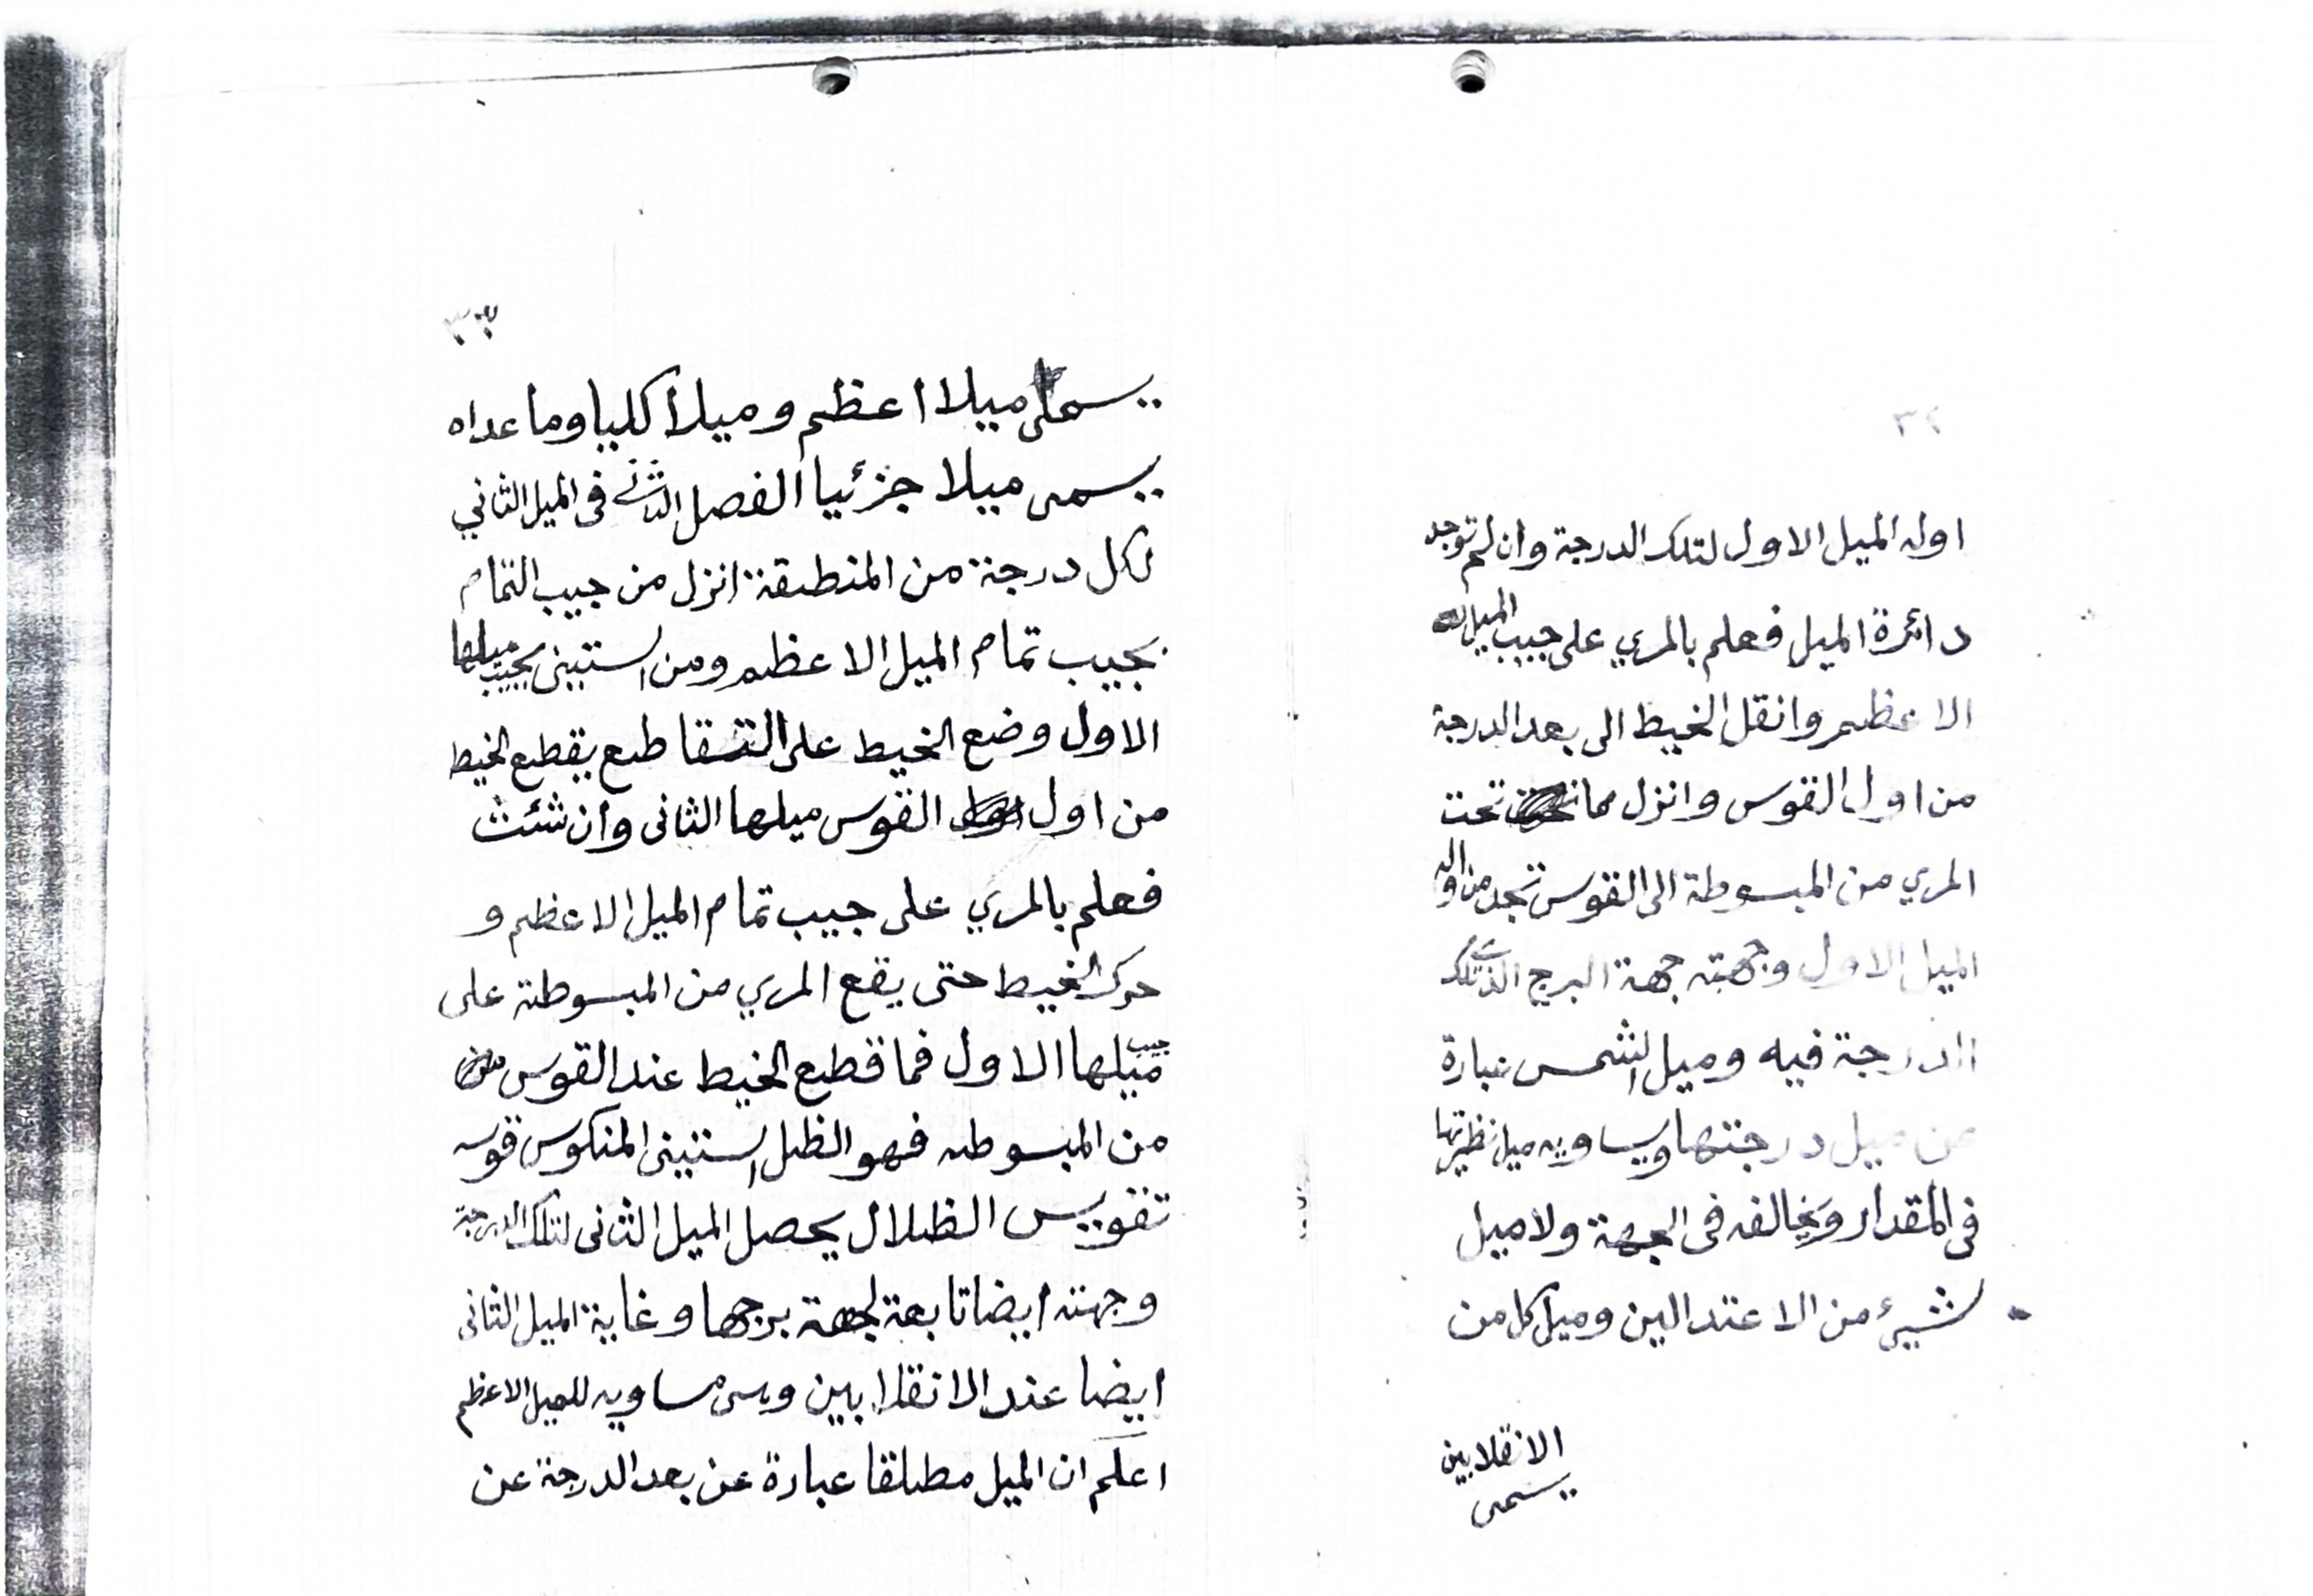 ٣٢
اوله الميل الاول لتلك الدرجة وان لم توجد
دائرة الميل فعلم بالمري على جيب الميل
الاعظم وانقل الخيط الى بعد الدرجة
من اول القوس وانزل مما تحت
المري من المبسوطة الى القوس تجد من اوله
الميل الاول وجهته جهة البرج الذي تلك
الدرجة فيه وميل الشمس عبارة
عن ميل درجتها ويساويه ميل نظيرتها
في المقدار ويخالفه في الجهة ولا ميل
لشيئ من الاعتدالين وميل كل من
الانقلابين
يسمى
٣٣
يسمى ميلا اعظم وميلا كليا وما عداه
يسمى ميلا جزئيا الفصل الثاني في الميل الثاني
لكل درجة من المنطقة انزل من جيب التمام
بجيب تمام الميل الاعظم ومن الستيني بجيب ميلها
الاول وضع الخيط على التقاطع يقطع الخيط
من اول القوس ميلها الثاني وان شئت
فعلم بالمري على جيب تمام الميل الاعظم و
حرك الخيط حتى يقع المري من المبسوطة على
جيب ميلها الاول فما قطع الخيط عند القوس
من المبسوطه فهو الظل الستيني المنكوس قوسه
تقويس الظلال يحصل الميل الثاني لتلك الدرجة
وجهته ايضا تابعة لجهة برجها وغاية الميل الثاني
ايضا عند الانقلابين وهى مساويه للميل الاعظم
اعلم ان الميل مطلقا عبارة عن بعد الدرجة عن